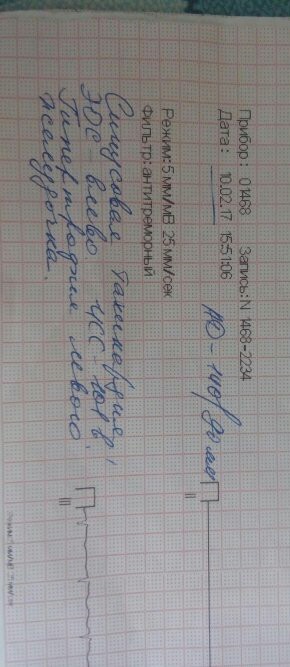 Прибор: 01468 Запись:N 1468-2234
Дата: 10.02.17 15:51:06
АД-140/90 мм
Режим: 5 мм/мВ 25 мм/сек
Фильтр: антитреморный
Синусовая тахикардия,
ЭОС-влево ЧСС-101 в'.
Гипертрофия левого
желудочка.
II
III